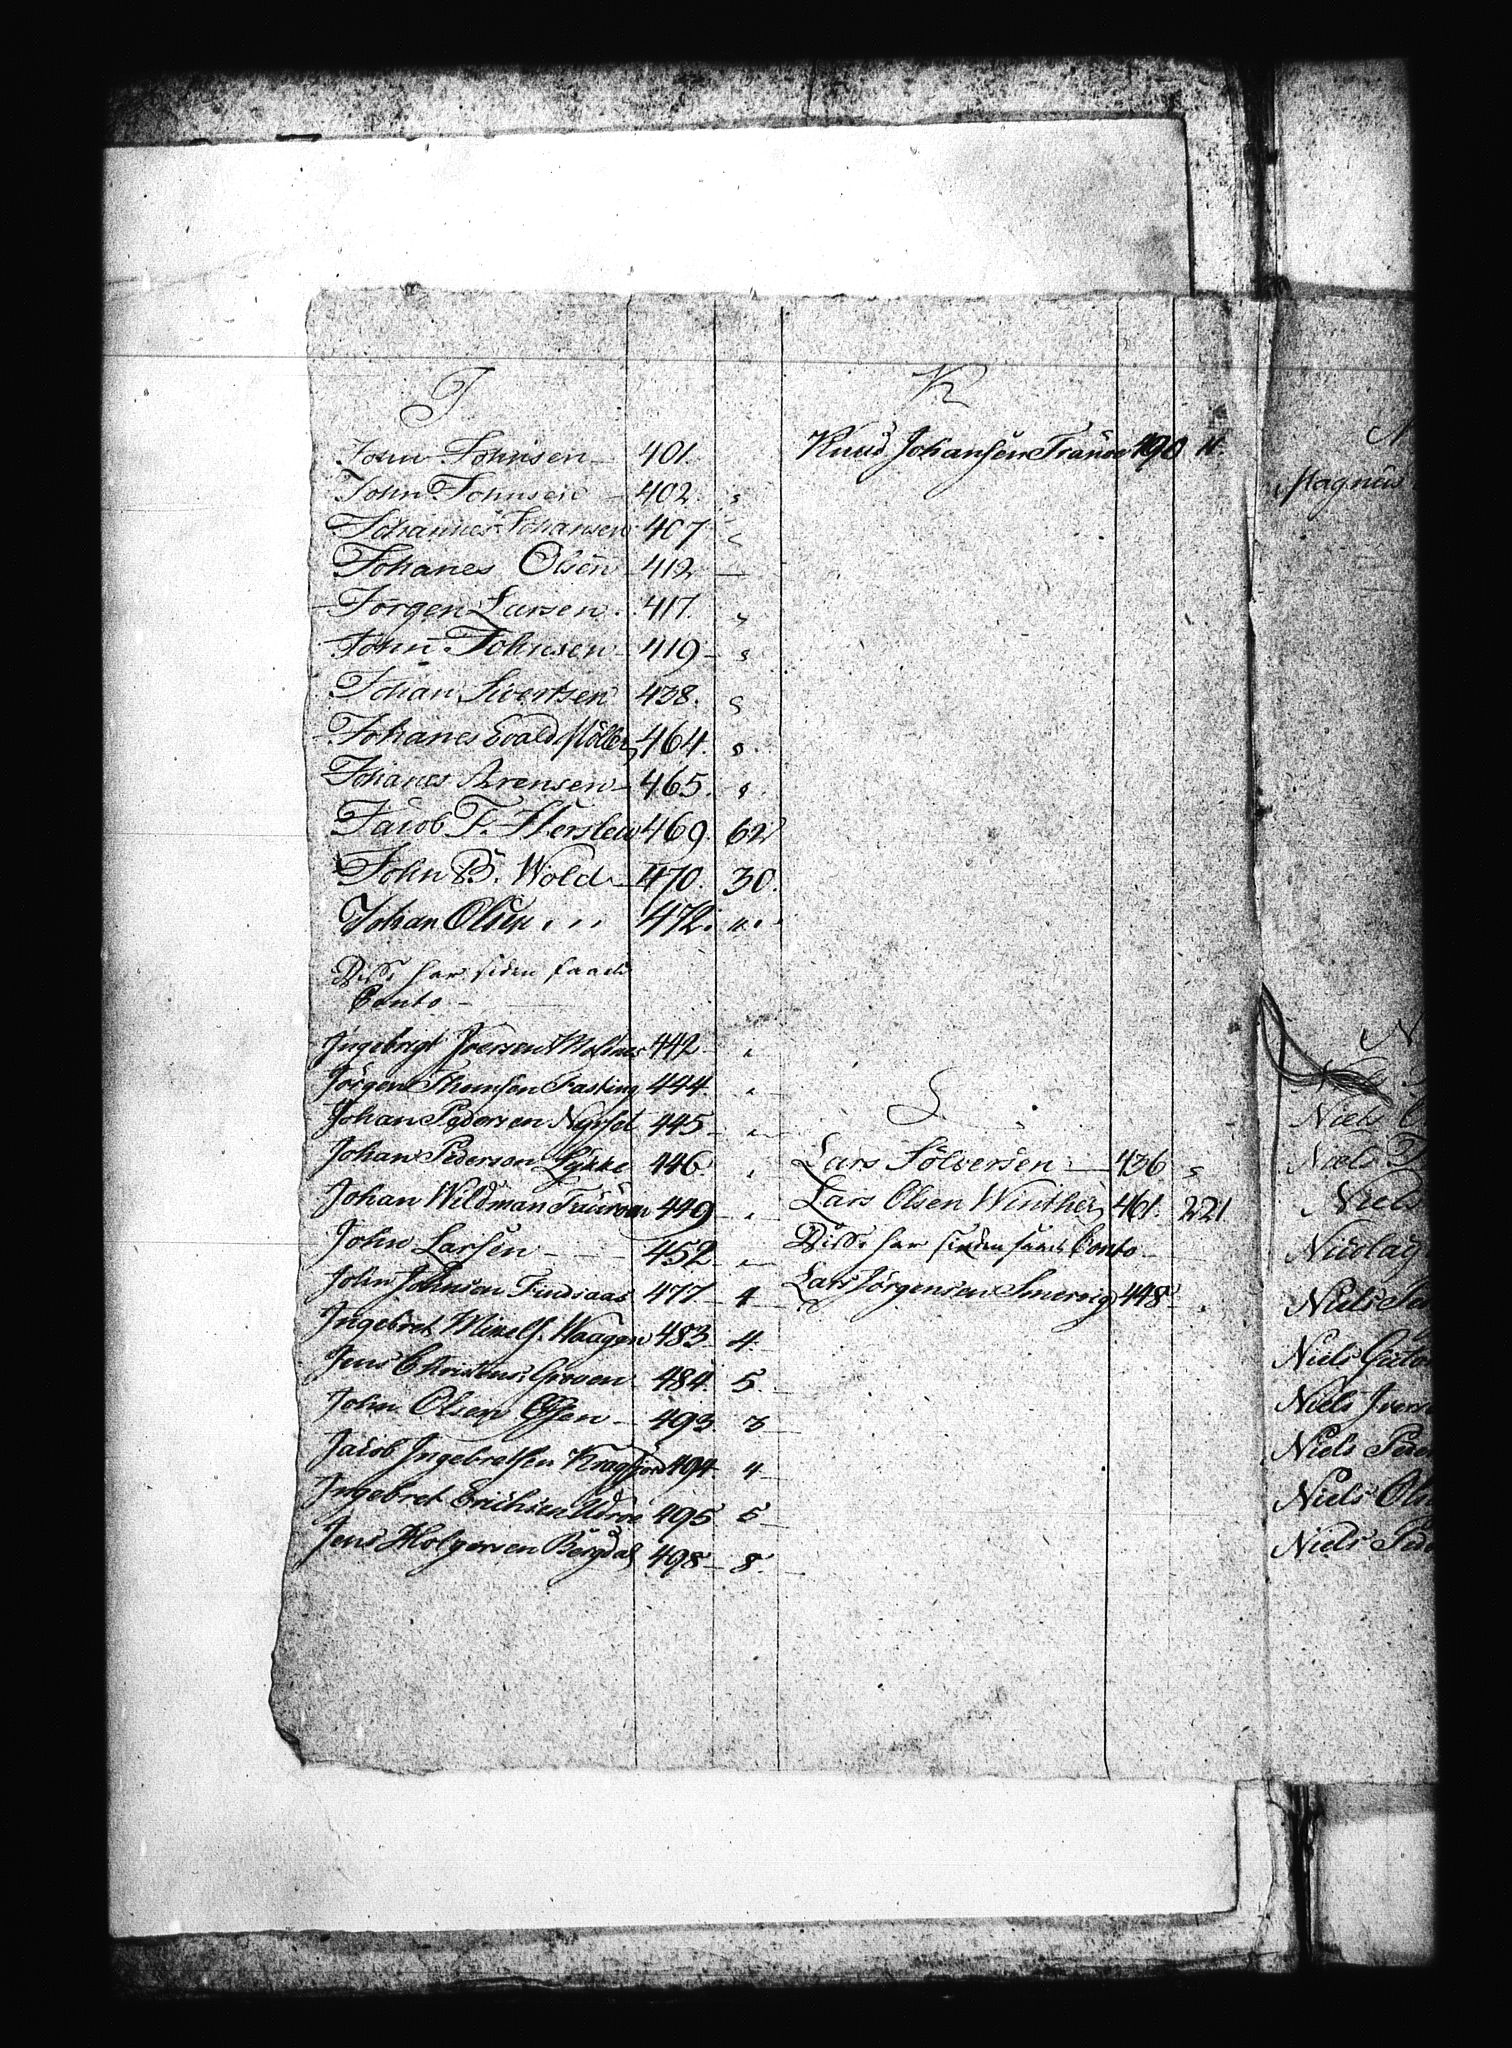 J
John Johnsen 401.
John Johnsen 402. "
Johannes Johansen 407 "
Johanes Olsen 412 —
Jörgen Larsen 417. "
John Johnsen 419 "
Johan Sivertsen 438. "
Johanes Evald Möller 464. "
Johanes Arensen 465. "
Jacob F. Herslew 469. 62
John B. Wold 470. 30.
Johan Olsen 472. "
Diss. har siden faaet
Conto
Ingebrigt Iversen Malnes 442 "
Jörgen Thomsen Fasting 444. "
Johan Pedersen Nyrset 445 "
Johan Pedersen Lykke 446. "
Johan Wildman 449 "
John Larsen 452 "
John Johnsen Findsaas 477 4
Ingebret Mikels. Waagen 483. 4.
Jens Christens. Groven 484. 5.
John Olsen 493. 3
Jacob Ingebretsen 494 4
Ingebret Erichsen Udröe 495 5
Jens Holgersen Bergdal 498 8.
K
Knud Johansen Tranöe 490 4.
L
Lars Sölversen 436 "
Lars Olsen Winther 461. 221
Diss. har siden faaet Conto
Lars Jörgensen Smervig 448 "
Magnus
N
Niels
Niels
Niels
Nicolay
Niels
Niels
Niels Ivers
Niels Peder
Niels Ols
Niels Peder